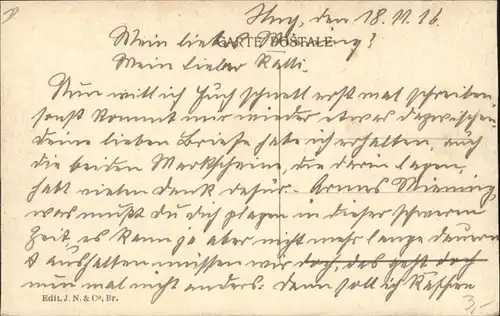 Huy, den 18.11.16.
CARTE POSTALE
Mein liebes Miening?
Mein lieber Kalli.
Nun will ich Euch schnell erst mal schreiben
sonst kommt mir wieder etwas dazwischen
deine lieben Briefe habe ich erhalten, auch
die beiden Markscheine, die darin lagen,
habt vielen Dank dafür. Armes Miening,
was mußt du dich plagen in dieser schweren
Zeit, es kann ja aber nicht mehr lange dauern
aushalten müssen wir doch, das geht doch
nun mal nicht anders. Dann soll ich
Edit. J. N. & Co, Br.
3,-